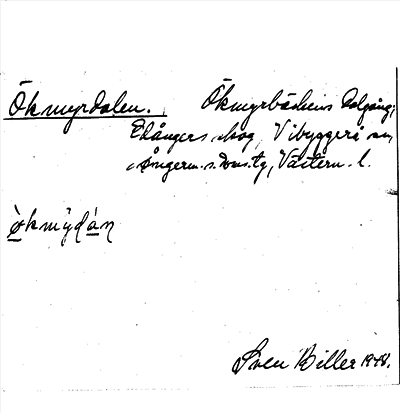 Ökmyrdalen. Ökmyrbäckens dalgång,
Edångers skog, Vibyggerå sn,
Ångerm. s. doms.tg, Västern. l.
ökmýdán
Sven Biller 1948.